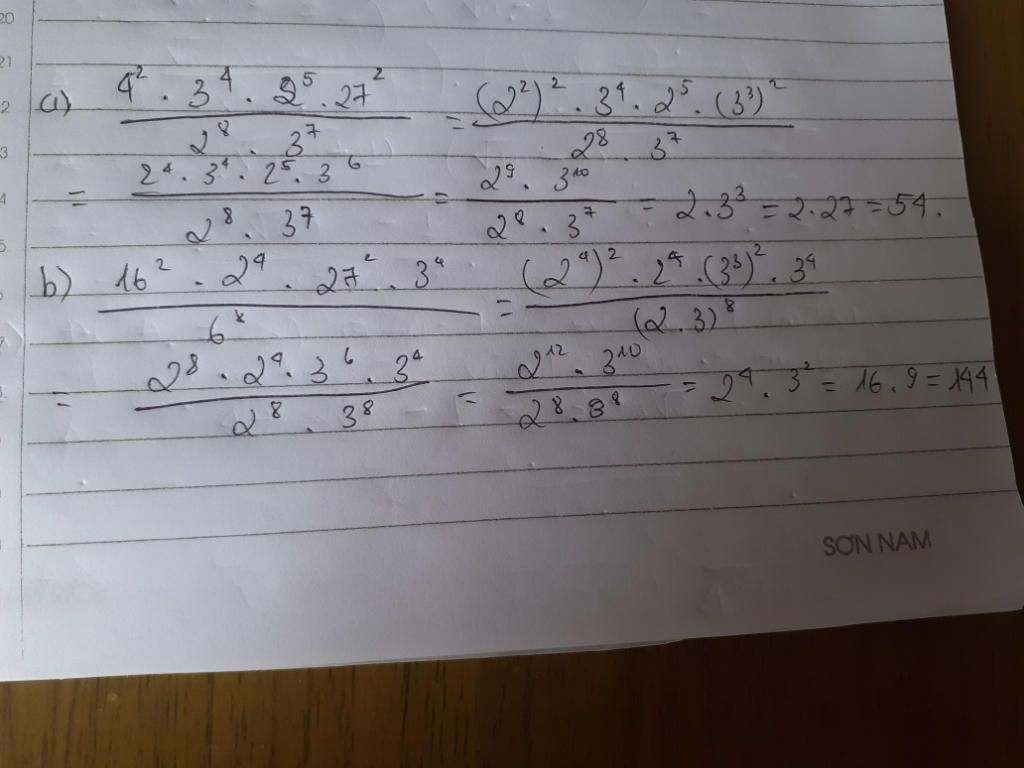 20
21
a) 4² . 3⁴ . 2⁵ . 27² / 2⁸ . 3⁷ = (2²)² . 3⁴ . 2⁵ . (3³)² / 2⁸ . 3⁷
= 2⁴ . 3⁴ . 2⁵ . 3⁶ / 2⁸ . 3⁷ = 2⁹ . 3¹⁰ / 2⁸ . 3⁷ = 2 . 3³ = 2 . 27 = 54 .
b) 16² . 2⁴ . 27² . 3⁴ / 6⁸ = (2⁴)² . 2⁴ . (3³)² . 3⁴ / (2 . 3)⁸
= 2⁸ . 2⁴ . 3⁶ . 3⁴ / 2⁸ . 3⁸ = 2¹² . 3¹⁰ / 2⁸ . 3⁸ = 2⁴ . 3² = 16 . 9 = 144
SON NAM